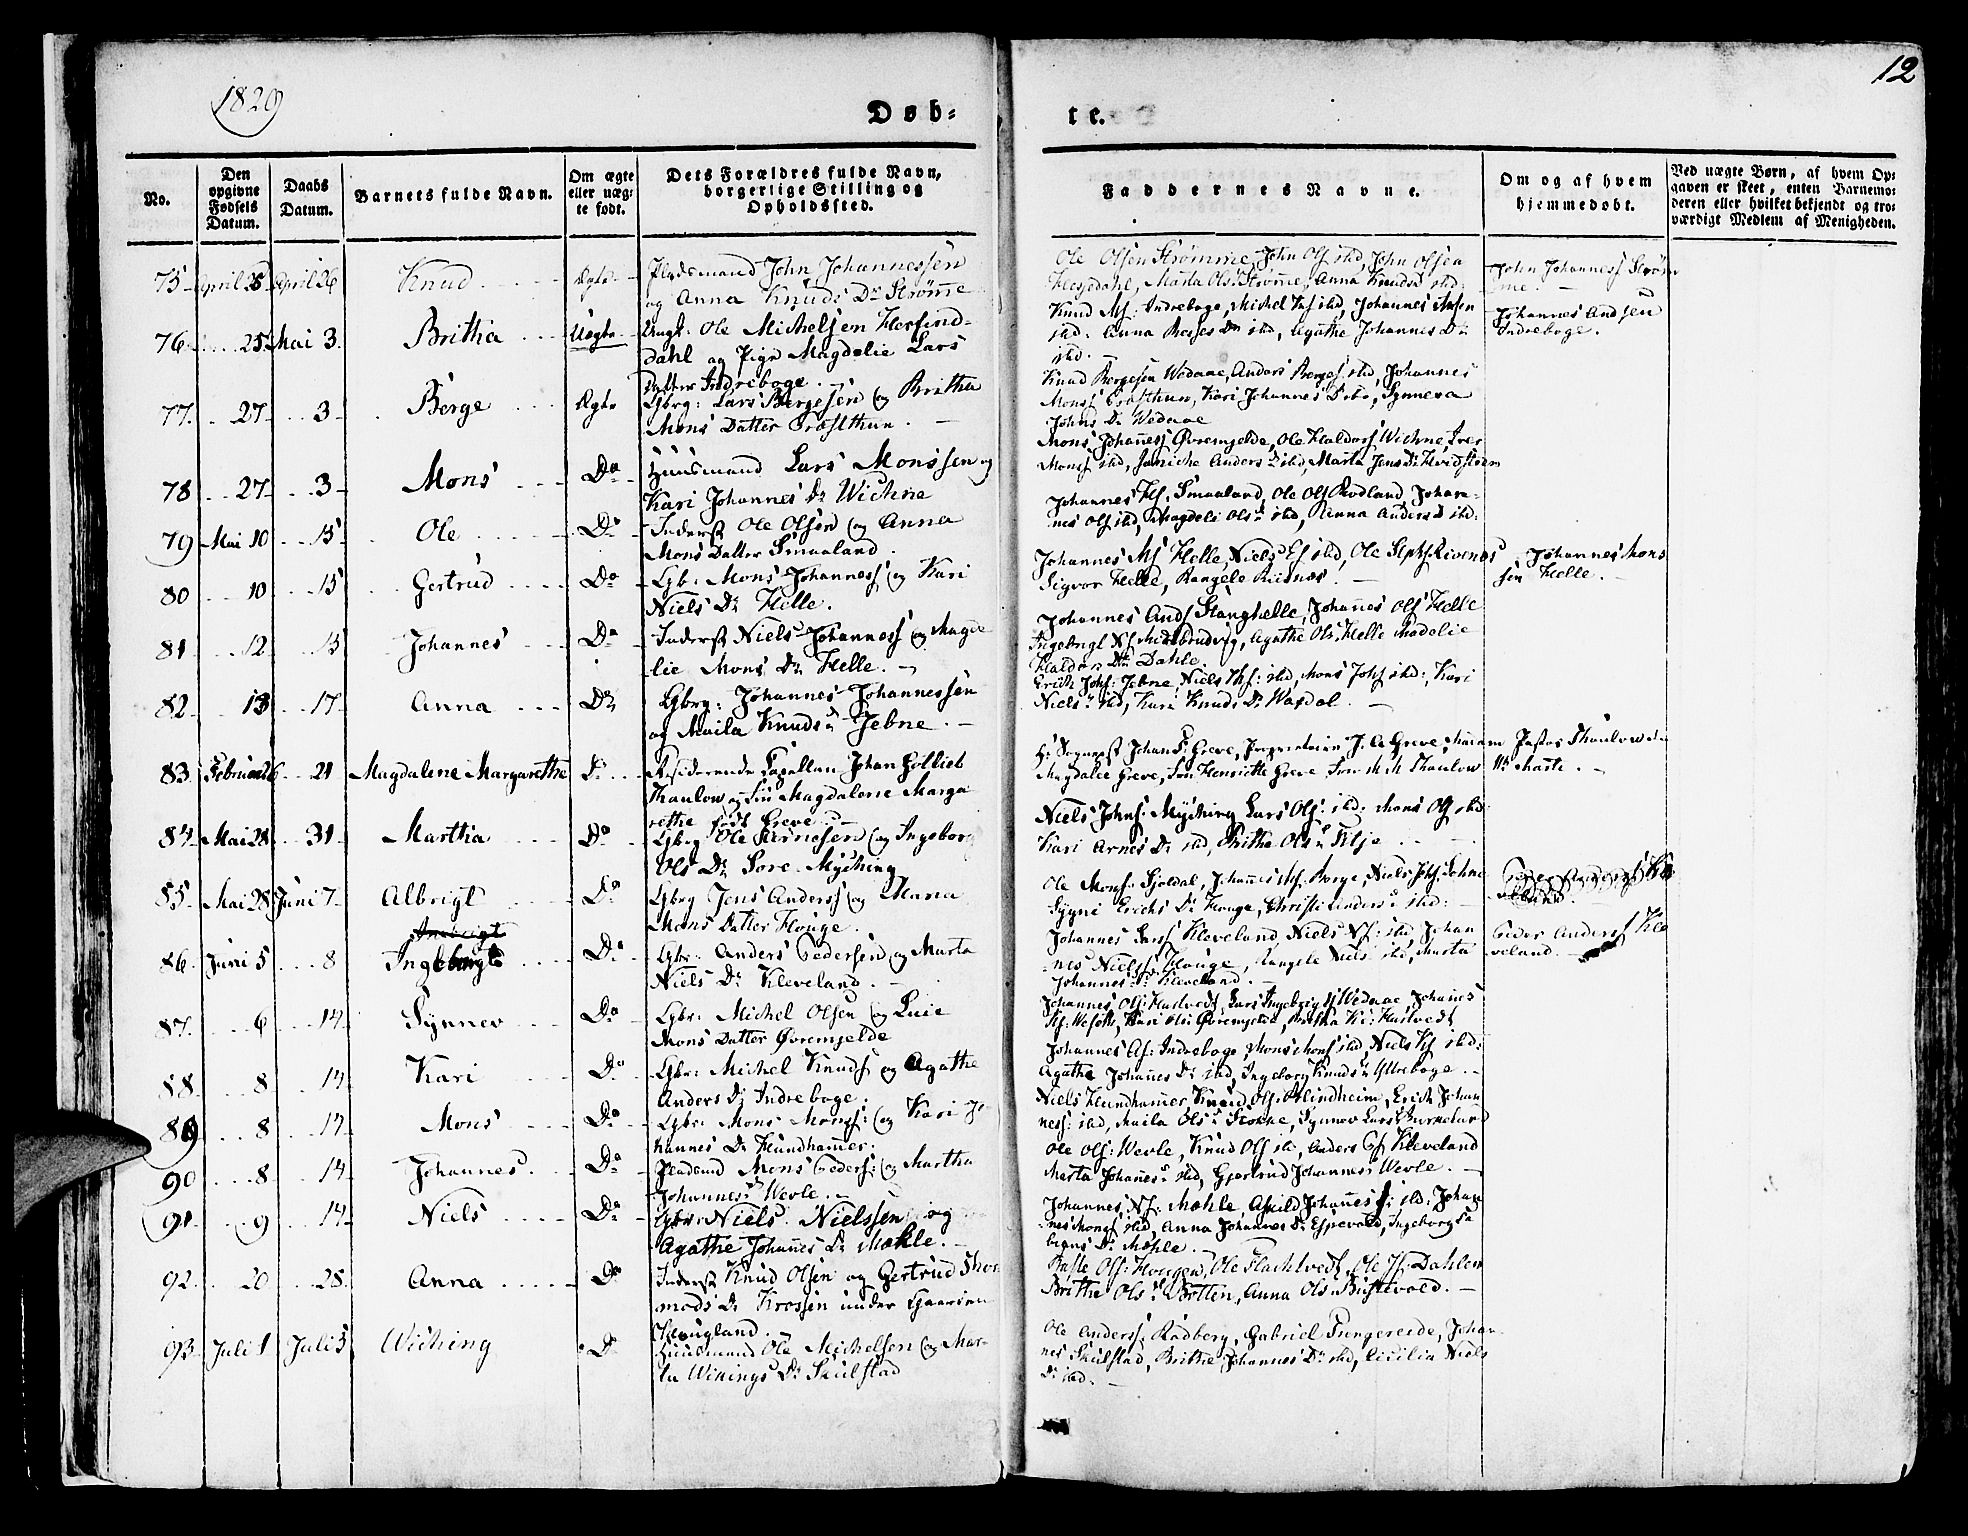 1829
12
Døb-
te.
No.
Den opgivne Fødsels Datum.
Daabs Datum.
Barnets fulde Navn.
Om ægte eller uægte født.
Dets Forældres fulde Navn, borgerlige Stilling og Opholdssted.
Faddernes Navne.
Om og af hvem hjemmedøbt.
Ved uægte Børn, af hvem Opgaven er skeet, enten Barnemoderen eller hvilket bekjendt og troværdigt Medlem af Menigheden.
75 April 25 April 26 Knud Ægte Pladsmand John Johannessen
og Anna Knuds Dr Strømme
Ole Olsen Strømme, John Ols ibd, John Olsen
Hesjedahl, Marta Ols Strømme, Anna Knuds ibd
John Johanness Strøm
me.
76 25 Mai 3 Britha Uægte Ungk: Ole Michelsen Hersind-
dahl og Pige Magdelie Lars
Datter Indreboge.
Knud Ms: Indreboge, Michel Ks ibd, Johannes
ibd: Anna Berges Dr ibd, Agathe Johannes Dr
ibd.
Johannes Andsen
Indreboge.
77 27 3 Berge Ægte Gbrg: Lars Bergesen og Britha
Mons Datter Træsthun.
Knud Bergesen Wedaae, Anders Berges ibd, Johannes
Monss Træsthun, Kari Johannes Dr ibd, Synneva
Johns Dr Wedaae
78 27 3 Mons Do Huusmand Lars Monssen og
Kari Johannes Dr Wichne
Mons Johanness Øvremjelde, Ole Haldors Wichne, Iver
Monss ibd, Janiche Anders D ibd, Marta Jens Dr Hvidsteen
79 Mai 10 15 Ole Do Inderst Ole Olsen og Anna
Mons Datter Smaaland.
Johannes Hs. Smaaland, Ole Ols Rødland, Johan-
nes Ols ibd, Magdeli Ols ibd, Anna Anders D ibd:
80 10 15 Gertrud Do Gbr: Mons Johanness og Kari
Niels Dr Helle.
Johannes Ms Helle, Niels Es ibd, Ole Stephs Rivenes
Sigvor Helle, Rangele
Johannes Mons
sen Helle.
81 12 15 Johannes Do Inderst Niels Johanness og Magde
lie Mons Dr Helle.
Johannes Ands Stanghelle, Johannes Ols Helle
Ingebrigt Ns Agathe Ols Helle Madelie
Haldors Dtr Dahle.
82 13 17 Anna Do Gbrg: Johannes Johannessen
og Maila Knuds Dr Jebne.
Erich Johs: Jebne, Niels ibd, Mons Johs ibd:, Kari
Niels Dr ibd, Kari Knuds Dr Wasdal.
83 Februar 26 21 Magdalene Margarethe Do Residerende Capellan Johan Gotlieb
Thaulow og Fru Magdalene Marga
rethe født Greve.
Hr Sognepst Johan Fr. Greve, Proprietairen J. A Greve, Madam
Magdalee Greve, Frøn Henriette Greve Frøn M. M Thaulow
Pastor Thaulow
84 Mai 28 31 Martha Do Gbrg Ole Arnesen og Ingebor
Ols Dr Søre-Myching
Niels Johns. Myching Lars Ols: ibd: Mons Ols ibd:
Kari Arnes Dr ibd, Brithe Ols Dr Tilje
85 Mai 28 Juni 7 Albrigt Do Gbrg Jens Anderss og Maria
Mons Datter Houge.
Ole Monss. Sjoldal, Johannes Ms. Borge, Niels Johs Jebne
Sygni Erichs Dr Houge, Christi Anders Dr ibd:
86 Juni 5 8 Ingebrigt Do Gbr: Anders Pedersen og Marta
Niels Dr Kleveland.
Johannes Larss Kleveland, Niels Ns: ibd Johan
nes Nielss Houge, Rangele Niels ibd, Marta
Johannes Dr Kleveland.
Peder Anderss Kle
veland.
87. 6 14 Synnev Do Gbr: Michel Olsen og Lucie
Mons Datter Øvremjelde
Johannes Ols: Hustvedt Lars Ingebrigts Wedaae Johanes
Ks: Kari Ols Øvremjelde, Britha Ks: Hustvedt
88 8 14 Kari Do Gbr: Michel Knuds og Agathe
Anders D: Indreboge.
Johannes As: Indreboge, Mons Mons ibd, Niels Ks ibd:
Agathe Johannes Dr ibd, Ingeborg Knuds Dr Yttreboge.
89 8 14 Mons Do Gbr: Mons Monss: og Kari Jo
hannes Dr Hundhammer.
Niels Hundhammer Knud Ols. Blindheim, Erich Johan
ness: ibd, Maila Ols Dr Synnev Lars Dr Birkeland
90 8 14 Johannes Do Pladsmd Mons Peders: og Martha
Johannes Dr Wevle.
Ole Ols: Wevle, Knud Ols ibd, Anders Ps Kleveland
Marta Johanes Dr ibd, Gjertrud Johannes Dr Wevle.
91 9 14 Niels Do Gbr: Niels Nielssen og
Agathe Johannes Dr Mæhle.
Johannes Ns: Mæhle, Askild Johannes s: ibd: Johan
nes Mons ibd, Anna Johannes Dr Espevold, Ingeborg
Dr Mæhle.
92 20 28 Anna Do Inderst Knud Olsen og Gertrud Thor
mods Dr Krossen under Gaarden
Hougland.
Ols: Hougen, Ole Flachtvedt, Ole Hs. Dahlen
Brithe Ols Dr Brotten, Anna Ols Dr Bustevold.
93 Juli 1 Juli 5 Wiching Do Huusmand Ole Michelsen og Mar-
ta Wikings Dr Skulstad
Ole Anderss: Rødberg, Gabriel Fungereide, Johan-
nes Skulstad, Brithe Johannes Dr ibd, Cicilia Niels
Dr ibd.